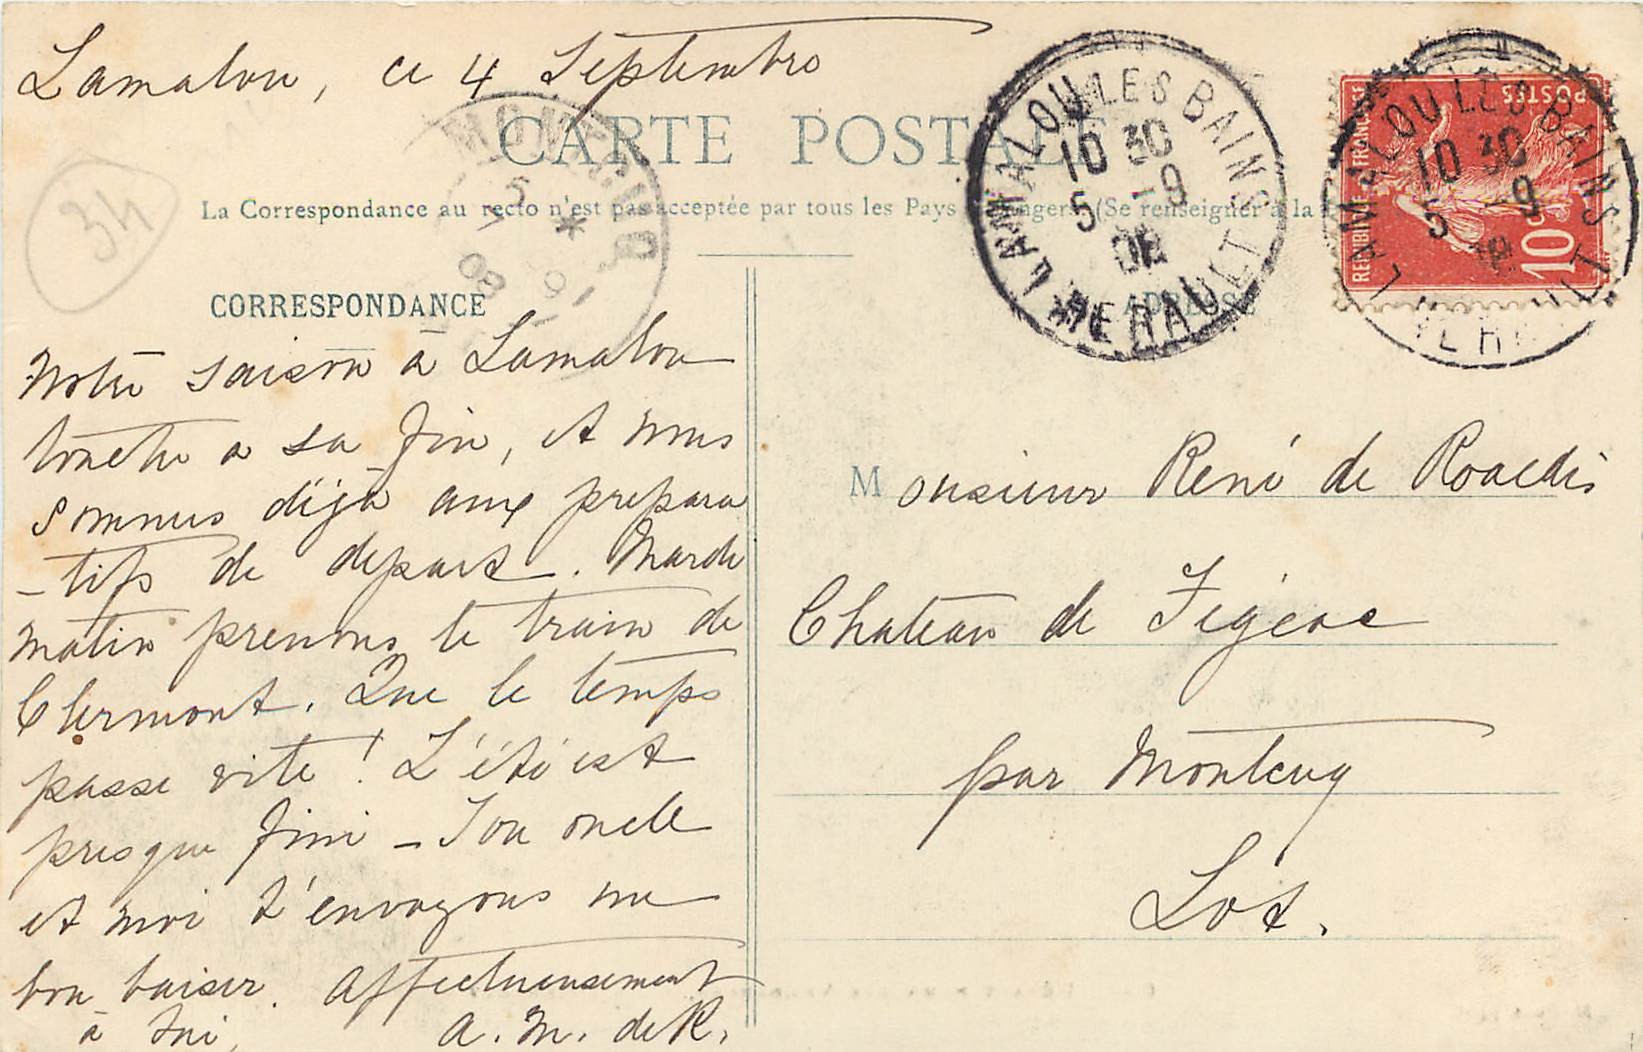 Lamalou, ce 4 Septembre
CARTE POSTALE
La Correspondance au recto n'est pas acceptée par tous les Pays étrangers (Se renseigner à la
CORRESPONDANCE
ADRESSE
34
Notre saison à Lamalou
touche a sa fin, et nous
sommes déjà aux prépara
-tifs de départ. Mardi
matin prenons le train de
Clermont. Que le temps
passe vite ! L'été est
presque fini – Ton oncle
et moi t'envoyons un
bon baiser. Affectueusement
à toi, A. M. de R.
Monsieur René de Roaldès
Chateau de Figeac
par Montcuq
Lot.
LAMALOU LES BAINS
10 30
5 -9
08
HERAULT
REPUBLIQUE FRANCAISE
POSTES
10c
LAMALOU LES BAINS
10 30
5 -9
HERAULT
MONTCUQ
5
*
9
08